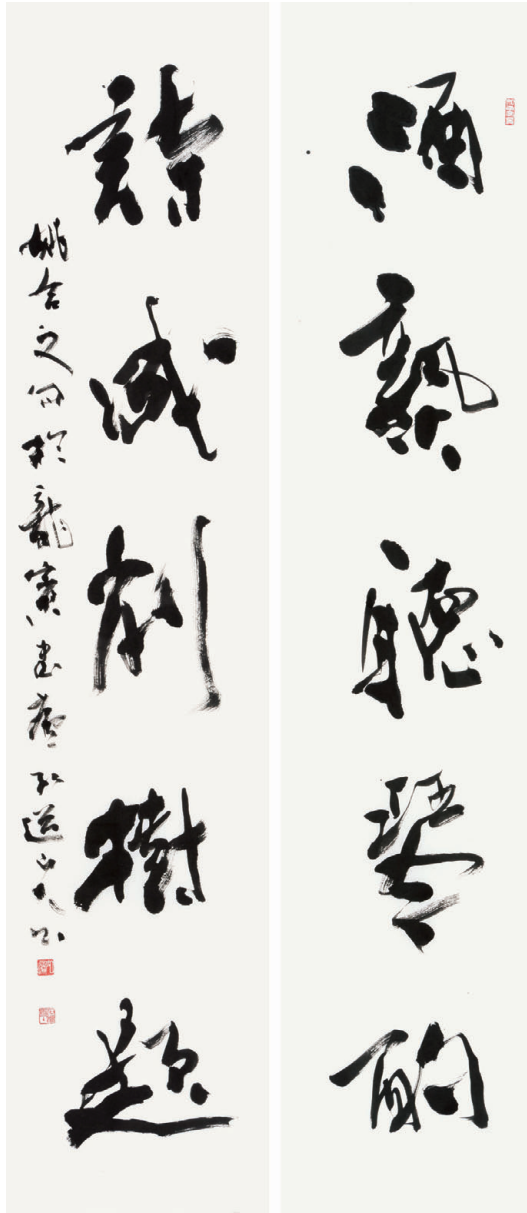 酒熟聽琴酌
詩成削樹題
姚合之句於龍賓書齋孔